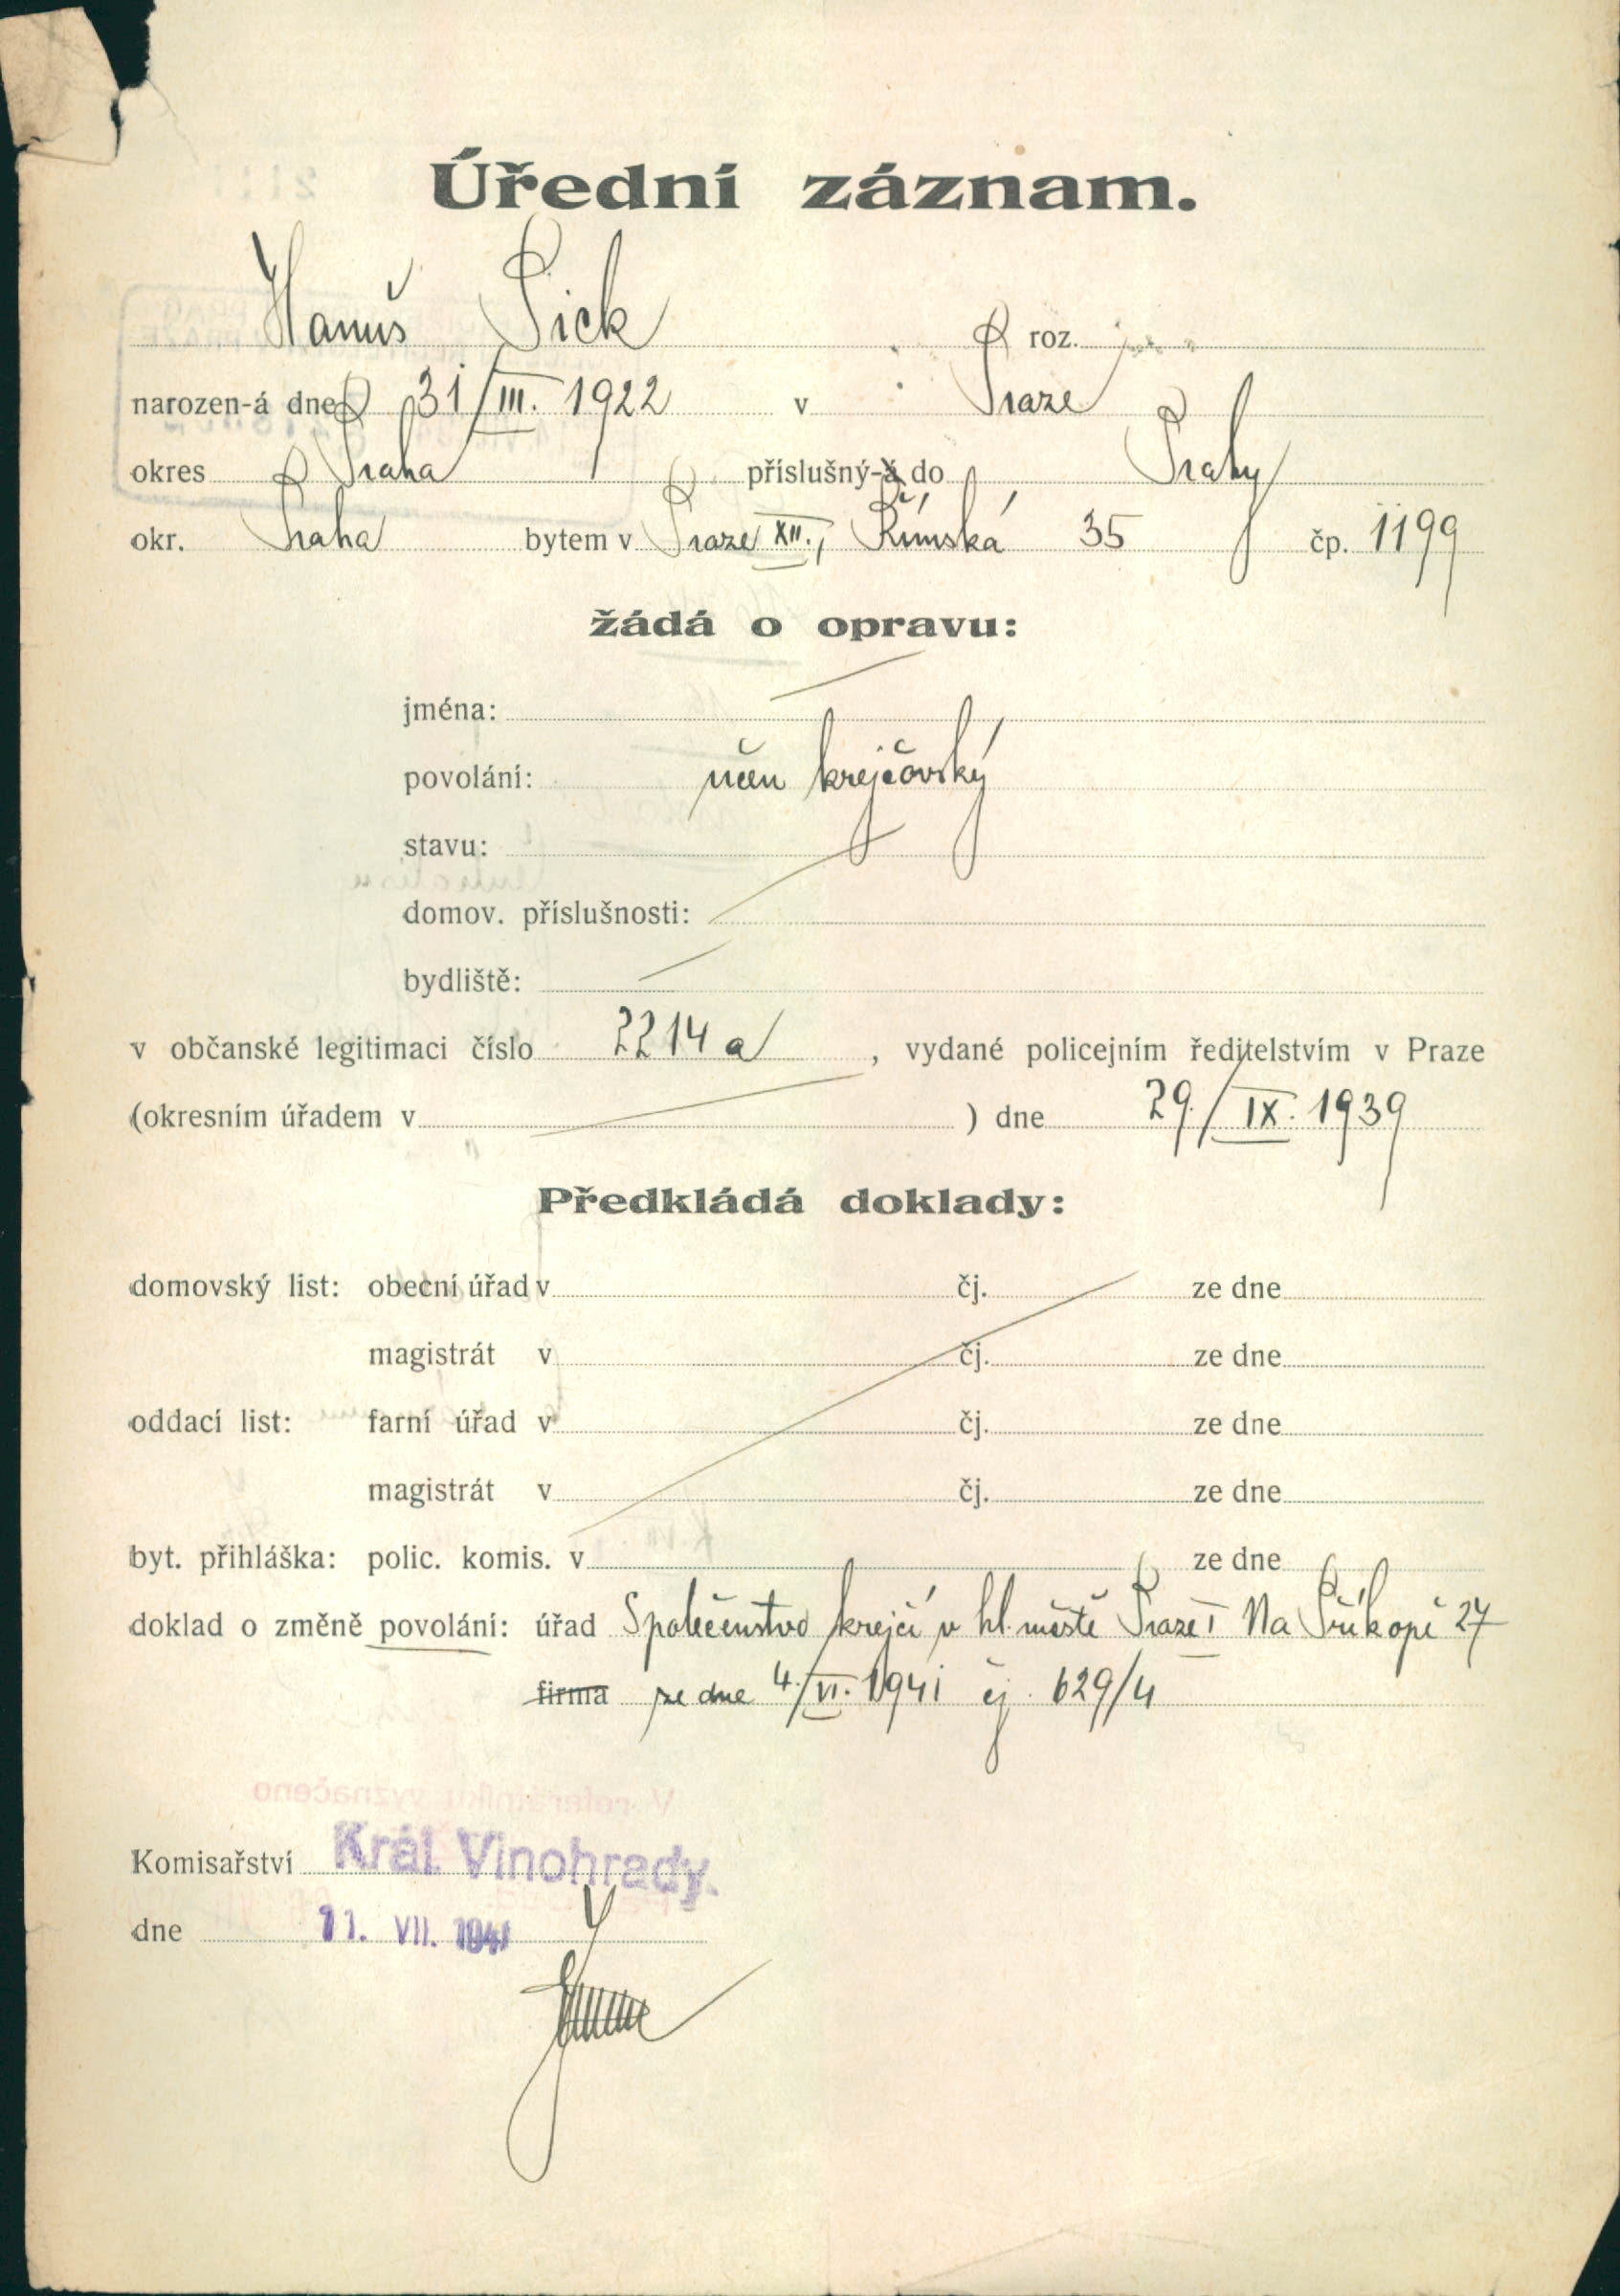 Úřední záznam.
Hanuš Pick roz.
narozen-á dne 31/III. 1922 v Praze
okres Praha příslušný-á do Prahy
okr. Praha bytem v Praze XII., Římská 35 čp. 1199
žádá o opravu:
jména:
povolání: učen krejčovský
stavu:
domov. příslušnosti:
bydliště:
v občanské legitimaci číslo 2214 a , vydané policejním ředitelstvím v Praze
(okresním úřadem v ) dne 29./IX. 1939
Předkládá doklady:
domovský list: obecní úřad v čj. ze dne
magistrát v čj. ze dne
oddací list: farní úřad v čj. ze dne
magistrát v čj. ze dne
byt. přihláška: polic. komis. v ze dne
doklad o změně povolání: úřad Společenstvo krejčí v hl. městě Praze I Na Příkopě 27
firma ze dne 4./VI. 1941 čj. 629/4
V referátníku vyznačeno
Komisařství Král. Vinohrady.
dne 11. VII. 1941